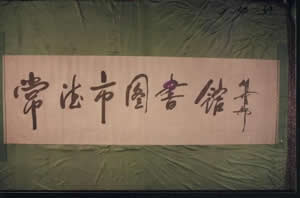 常德市图書館